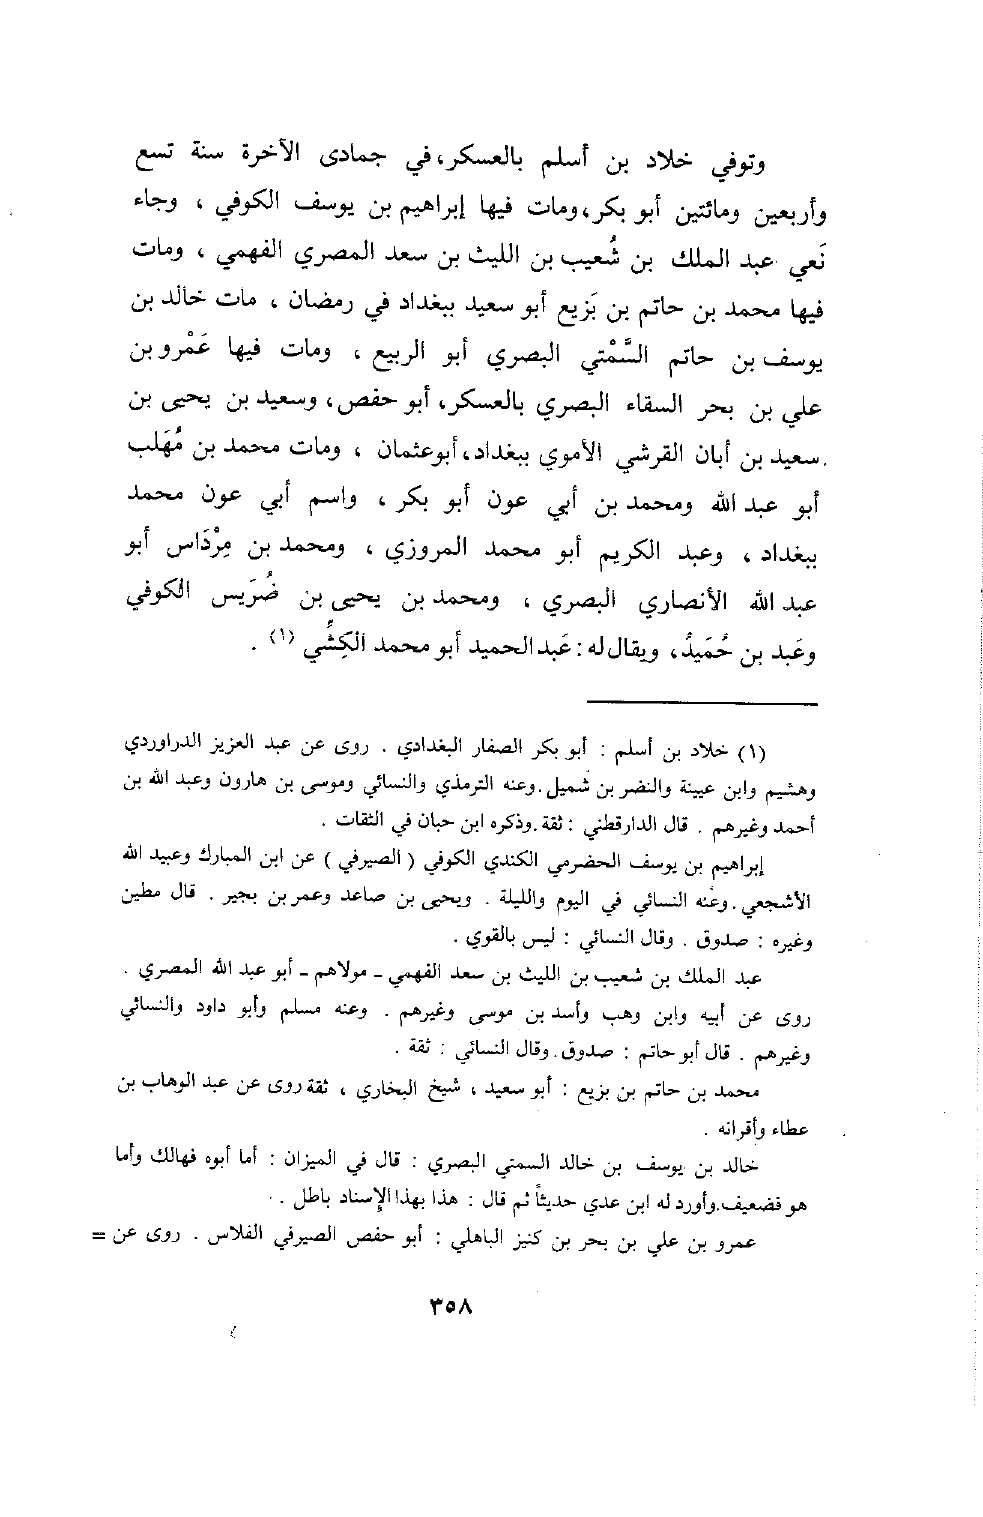 وتوفي خلاد بن أسلم بالعسكر، في جمادى الآخرة سنة تسع
وأربعين ومائتين أبو بكر، ومات فيها إبراهيم بن يوسف الكوفي ، وجاء
نَعي عبد الملك بن شُعيب بن الليث بن سعد المصري الفهمي ، ومات
فيها محمد بن حاتم بن بَزيع أبو سعيد ببغداد في رمضان ، مات خالد بن
يوسف بن حاتم السَّمْتي البصري أبو الربيع ، ومات فيها عَمْرو بن
علي بن بحر السقاء البصري بالعسكر، أبو حفص، وسعيد بن يحيى بن
سعيد بن أبان القرشي الأموي ببغداد، أبوعثمان ، ومات محمد بن مُهَلب
أبو عبد الله ومحمد بن أبي عون أبو بكر ، واسم أبي عون محمد
ببغداد ، وعبد الكريم أبو محمد المروزي ، ومحمد بن مِرْدَاس أبو
عبد الله الأنصاري البصري ، ومحمد بن يحيى بن ضُرَيس الكوفي
وعَبد بن حُمَيدُ، ويقال له : عَبد الحميد أبو محمد الكِشِّي (١) .
(١) خلاد بن أسلم : أبو بكر الصفار البغدادي . روى عن عبد العزيز الدراوردي
وهشيم وابن عيينة والنضر بن شميل . وعنه الترمذي والنسائي وموسى بن هارون وعبد الله بن
أحمد وغيرهم . قال الدارقطني : ثقة . وذكره ابن حبان في الثقات .
إبراهيم بن يوسف الحضرمي الكندي الكوفي ( الصيرفي ) عن ابن المبارك وعبيد الله
الأشجعي . وعنه النسائي في اليوم والليلة . ويحيى بن صاعد وعمر بن بجير . قال مطين
وغيره : صدوق . وقال النسائي : ليس بالقوي .
عبد الملك بن شعيب بن الليث بن سعد الفهمي - مولاهم - أبو عبد الله المصري .
روى عن أبيه وابن وهب وأسد بن موسى وغيرهم . وعنه مسلم وأبو داود والنسائي
وغيرهم . قال أبو حاتم : صدوق . وقال النسائي : ثقة .
محمد بن حاتم بن بزيع : أبو سعيد ، شيخ البخاري ، ثقة روى عن عبد الوهاب بن
عطاء وأقرانه .
خالد بن يوسف بن خالد السمتي البصري : قال في الميزان : أما أبوه فهالك وأما
هو فضعيف . وأورد له ابن عدي حديثاً ثم قال : هذا بهذا الإسناد باطل .
عمرو بن علي بن بحر بن كنيز الباهلي : أبو حفص الصيرفي الفلاس . روى عن =
٣٥٨